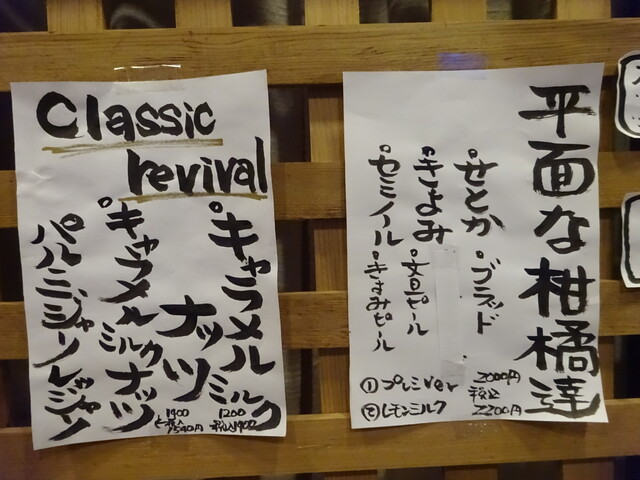 Classic
revival
°キャラメル
ナッツミルク
°キャラメル
ミルクナッツ
パルミジャーノレッジャーノ
1200
1400
平面な柑橘達
°せとか
ブラッド
°きよみ
文旦ピール
°セミノール
きよみピール
①プレミver 2000円
税込
②レモンミルク 2200円